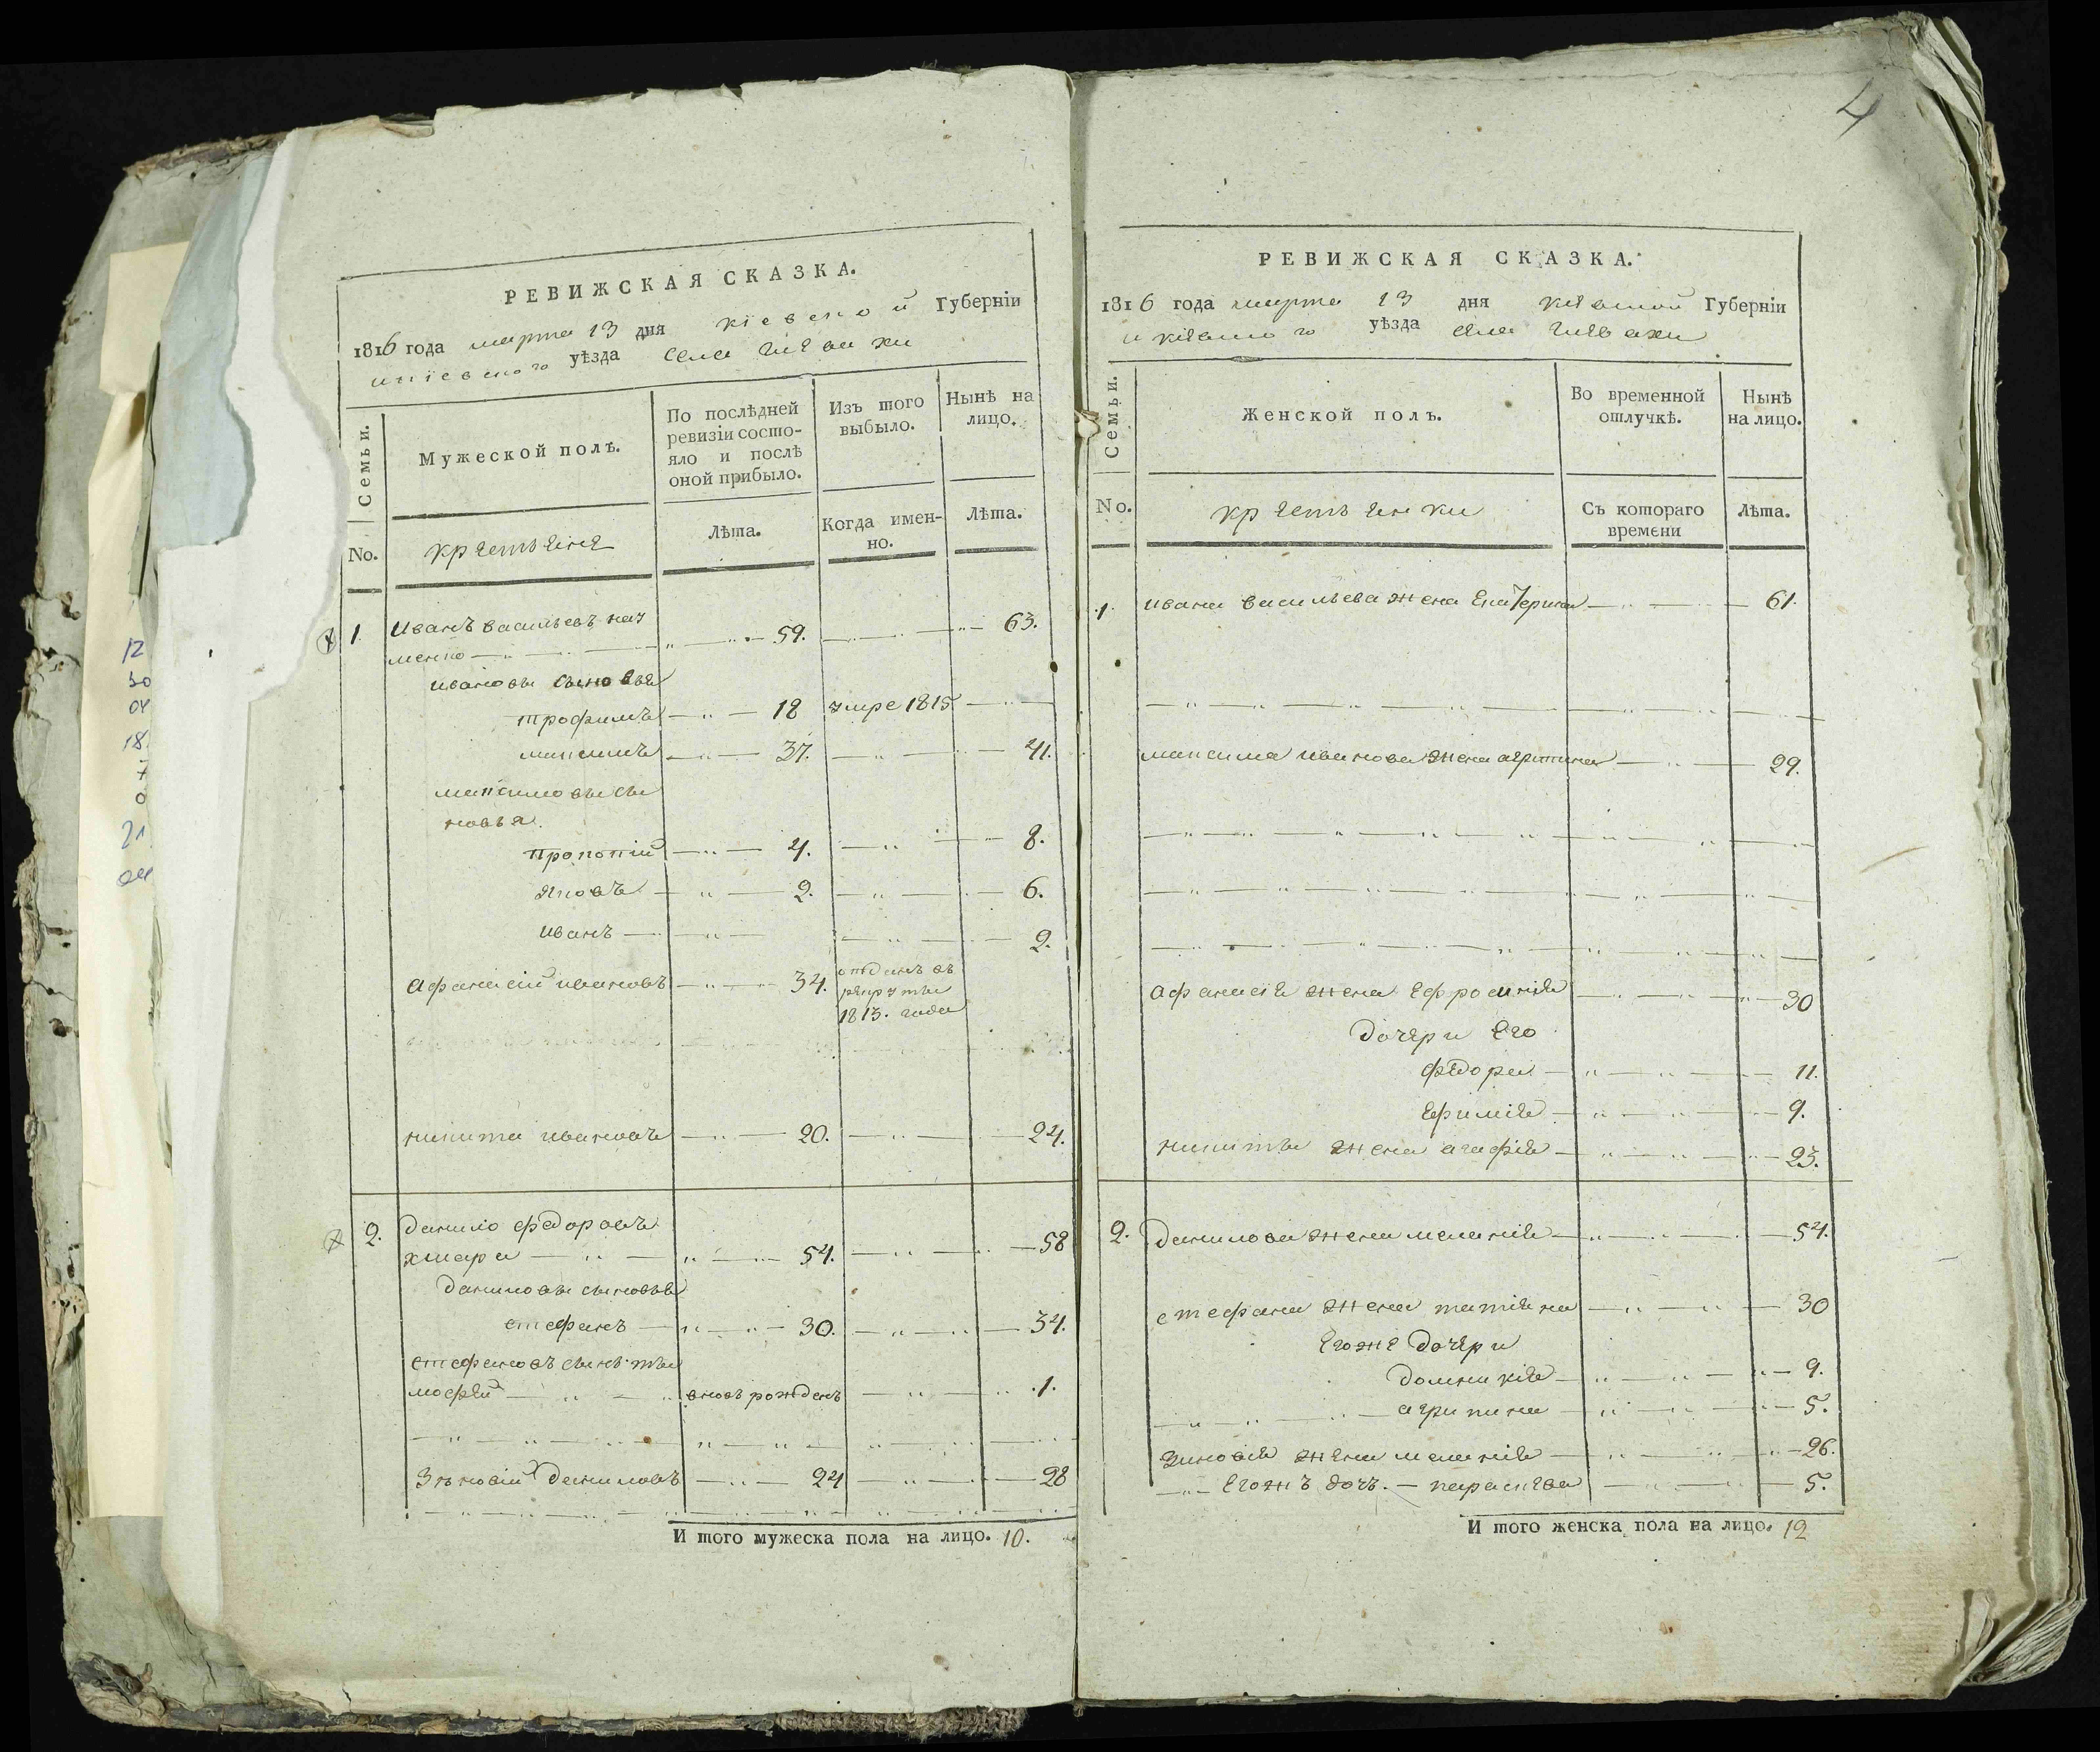 РЕВИЖСКАЯ СКАЗКА.
1816 года марта 13 дня кіевской Губерніи
и кіевского уѣзда села Гнѣвахи
Семьи.
Мужеской полъ.
По послѣдней
ревизіи состо-
яло и послѣ
оной прибыло.
Изъ того
выбыло.
Нынѣ на
лицо.
No.
крестьяне
Лѣта.
Когда имен-
но.
Лѣта.
1. Иванъ васильевъ наз
менко 59. 63.
ивановы сыновья
трофимъ 18 умре 1815
максимъ 37. 41.
максимовы сы
новья.
прокопій 4. 8.
яковъ 2. 6.
иванъ 2.
афанасій ивановъ 34. отданъ въ
рекруты
1813. года
никита ивановъ 20. 24.
2. данило федоровъ
хмара 54. 58
даниловы сыновья
стефанъ 30. 34.
стефановъ сынъ ти
мофей вновь рожденъ 1.
Зѣновій даниловъ 24 28
И того мужеска пола на лицо. 10.
4
РЕВИЖСКАЯ СКАЗКА.
1816 года марта 13 дня кіевской Губерніи
и кіевского уѣзда села Гнѣвахи
Семьи.
Женской полъ.
Во временной
отлучкѣ.
Нынѣ
на лицо.
No.
крестьянки
Съ котораго
времени
Лѣта.
1. ивана васильева жена Екатерина 61.
максима иванова жена агрипина 29.
афанасія жена Ефросинія 30
дочери Его
федора 11.
Ефимія 9.
никиты жена агафія 23.
2. данилова жена меланія 54.
стефана жена татіяна 30
Егоже дочери
домникія 9.
агрипина 5.
зиновія жена меланія 26.
Егожъ дочь. параскева 5.
И того женска пола на лицо. 12
12
30
04
18
21
04